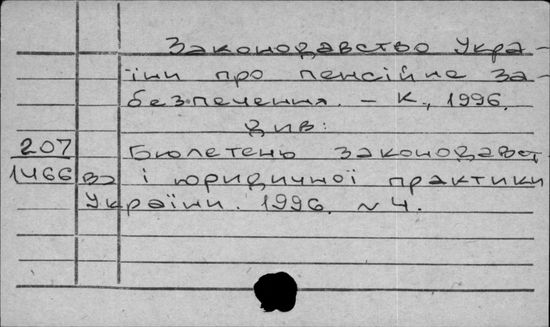 Законодавство Укра-
їни про пенсійне за-
безпечення. – К., 1996.
див:
207 Бюлетень законодавст
1466 ва і юридичної практики
України. 1996. № 4.